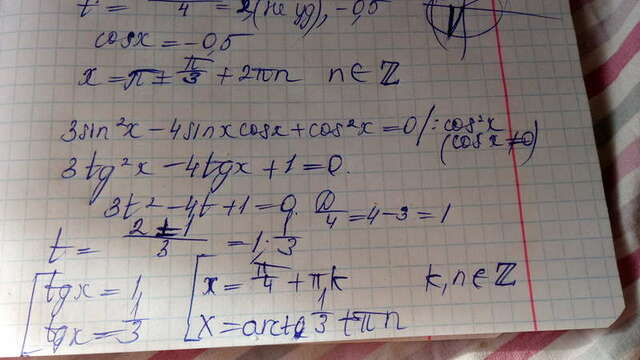 t = —/4 = 2 (не уд), -0,5
cosx = -0,5
x = π ± π/3 + 2πn n ∈ ℤ
3sin²x - 4sinxcosx + cos²x = 0 /: cos²x
(cosx ≠ 0)
3tg²x - 4tgx + 1 = 0.
3t² - 4t + 1 = 0. D/4 = 4 - 3 = 1
t = (2 ± 1)/3 = 1; 1/3
[ tgx = 1, [ x = π/4 + πk k, n ∈ ℤ
tgx = 1/3 x = arctg 1/3 + πn